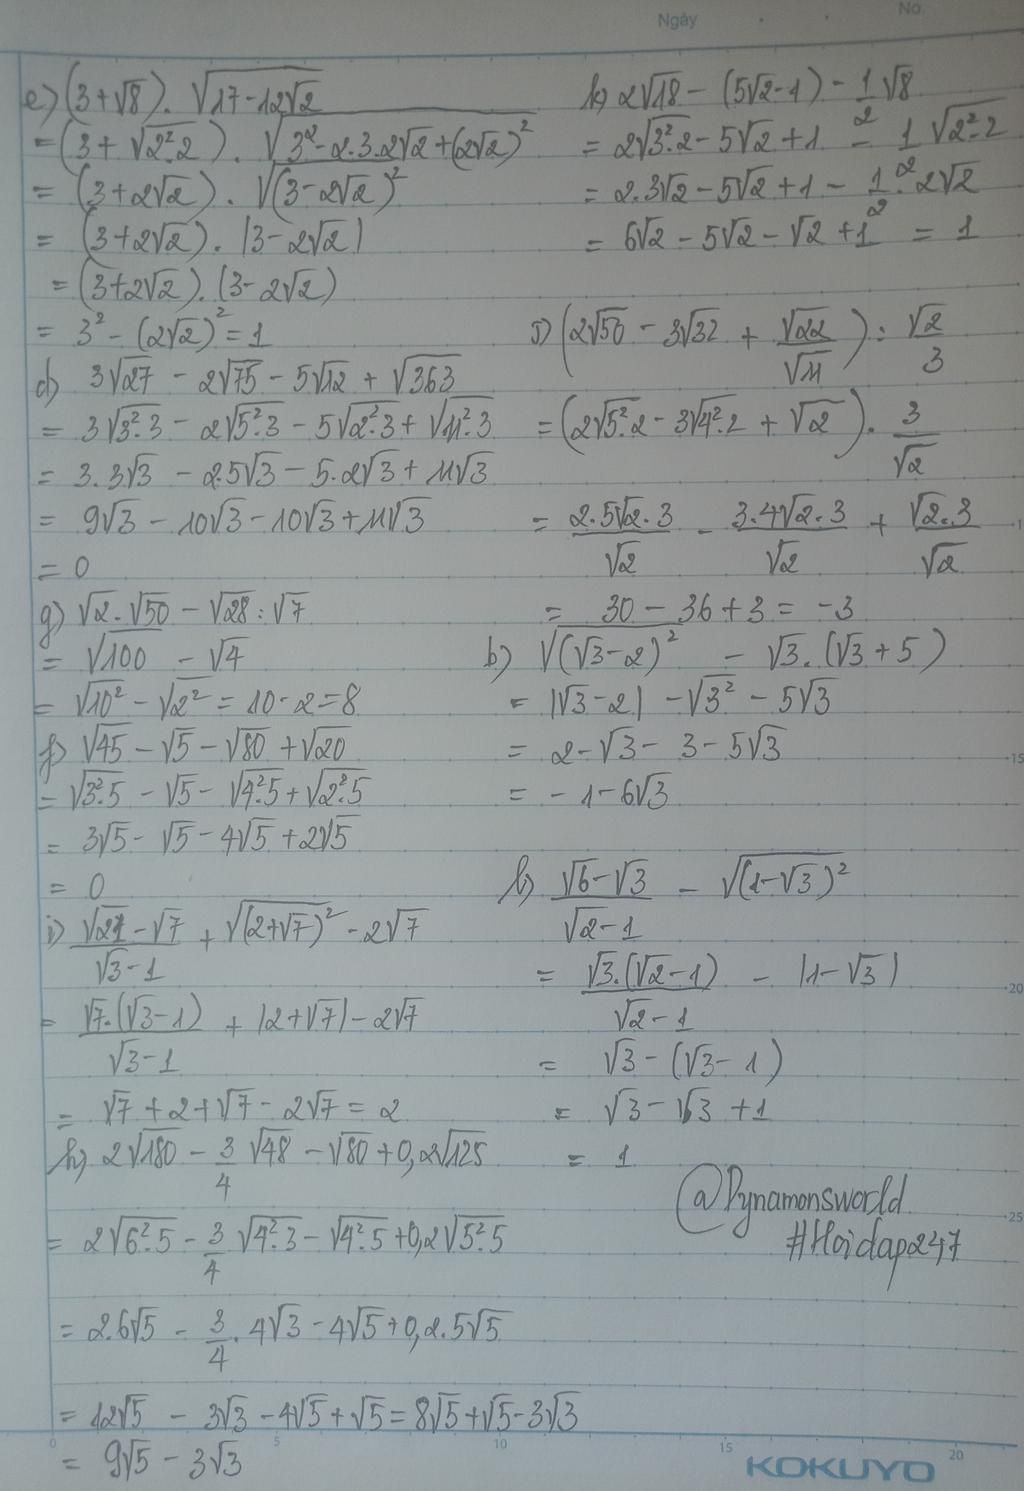 Ngày
No.
e) (3+√8). √(17-12√2)
= (3+√(2².2)). √(3²-2.3.2√2+(2√2)²)
= (3+2√2). √((3-2√2)²)
= (3+2√2). |3-2√2|
= (3+2√2).(3-2√2)
= 3² - (2√2)² = 1
d) 3√27 - 2√75 - 5√12 + √363
= 3√(3².3) - 2√(5².3) - 5√(2².3) + √(11².3)
= 3.3√3 - 2.5√3 - 5.2√3 + 11√3
= 9√3 - 10√3 - 10√3 + 11√3
= 0
g) √2.√50 - √28:√7
= √100 - √4
= √(10²) - √(2²) = 10-2=8
f) √45 - √5 - √80 + √20
= √(3².5) - √5 - √(4².5) + √(2².5)
= 3√5 - √5 - 4√5 + 2√5
= 0
i) (√21-√7)/(√3-1) + √((2+√7)²) - 2√7
= (√7.(√3-1))/(√3-1) + |2+√7| - 2√7
= √7+2+√7-2√7 = 2
h) 2√180 - 3/4 √48 - √80 + 0,2√125
= 2√(6².5) - 3/4 √(4².3) - √(4².5) + 0,2√(5².5)
= 2.6√5 - 3/4 . 4√3 - 4√5 + 0,2.5√5
= 12√5 - 3√3 - 4√5 + √5 = 8√5 + √5 - 3√3
= 9√5 - 3√3
k) 2√18 - (5√2-1) - 1/2 √8
= 2√(3².2) - 5√2 + 1 - 1/2 √(2².2)
= 2.3√2 - 5√2 + 1 - 1/2 . 2√2
= 6√2 - 5√2 - √2 + 1 = 1
j) (2√50 - 3√32 + √22/√11) : √2/3
= (2√(5².2) - 3√(4².2) + √2) . 3/√2
= (2.5√2.3)/√2 - (3.4√2.3)/√2 + (√2.3)/√2
= 30 - 36 + 3 = -3
b) √((√3-2)²) - √3.(√3+5)
= |√3-2| - √(3²) - 5√3
= 2-√3 - 3 - 5√3
= -1-6√3
l) (√6-√3)/(√2-1) - √((1-√3)²)
= (√3.(√2-1))/(√2-1) - |1-√3|
= √3 - (√3-1)
= √3 - √3 + 1
= 1
@Dynamonsworld
#Hoidap247
15
20
25
0 5 10 15 20
KOKUYO